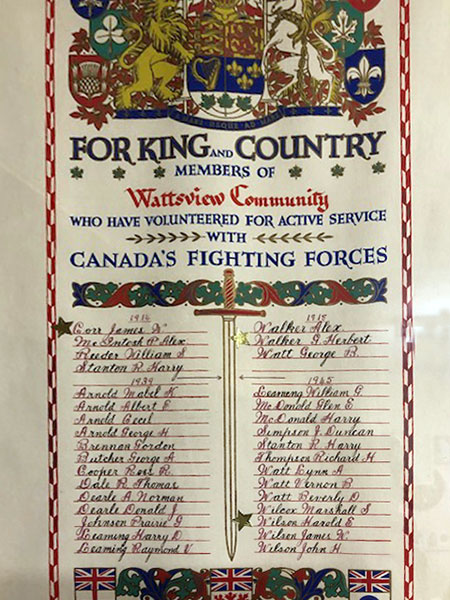 A MARI USQUE AD MARE
FOR KING AND COUNTRY
MEMBERS OF
Wattsview Community
WHO HAVE VOLUNTEERED FOR ACTIVE SERVICE
WITH
CANADA'S FIGHTING FORCES
1914
Corr James W
McIntosh P Alex
Reeder William S
Stanton R Harry
1918
Walker Alex
Walker G Herbert
Watt George B
1939
Arnold Mabel K
Arnold Albert E
Arnold Cecil
Arnold George H
Brennan Gordon
Butcher George A
Cooper Ross R
Dale R Thomas
Dearle A Norman
Dearle Donald J
Johnson Prairie G
Leaming Harry D
Leaming Raymond V
1945
Leaming William G
McDonald Glen E
McDonald Harry
Simpson J Duncan
Stanton R Harry
Thompson Richard H
Watt Lynn A
Watt Vernon B
Watt Beverly D
Wilcox Marshall S
Wilson Harold E
Wilson James W
Wilson John H